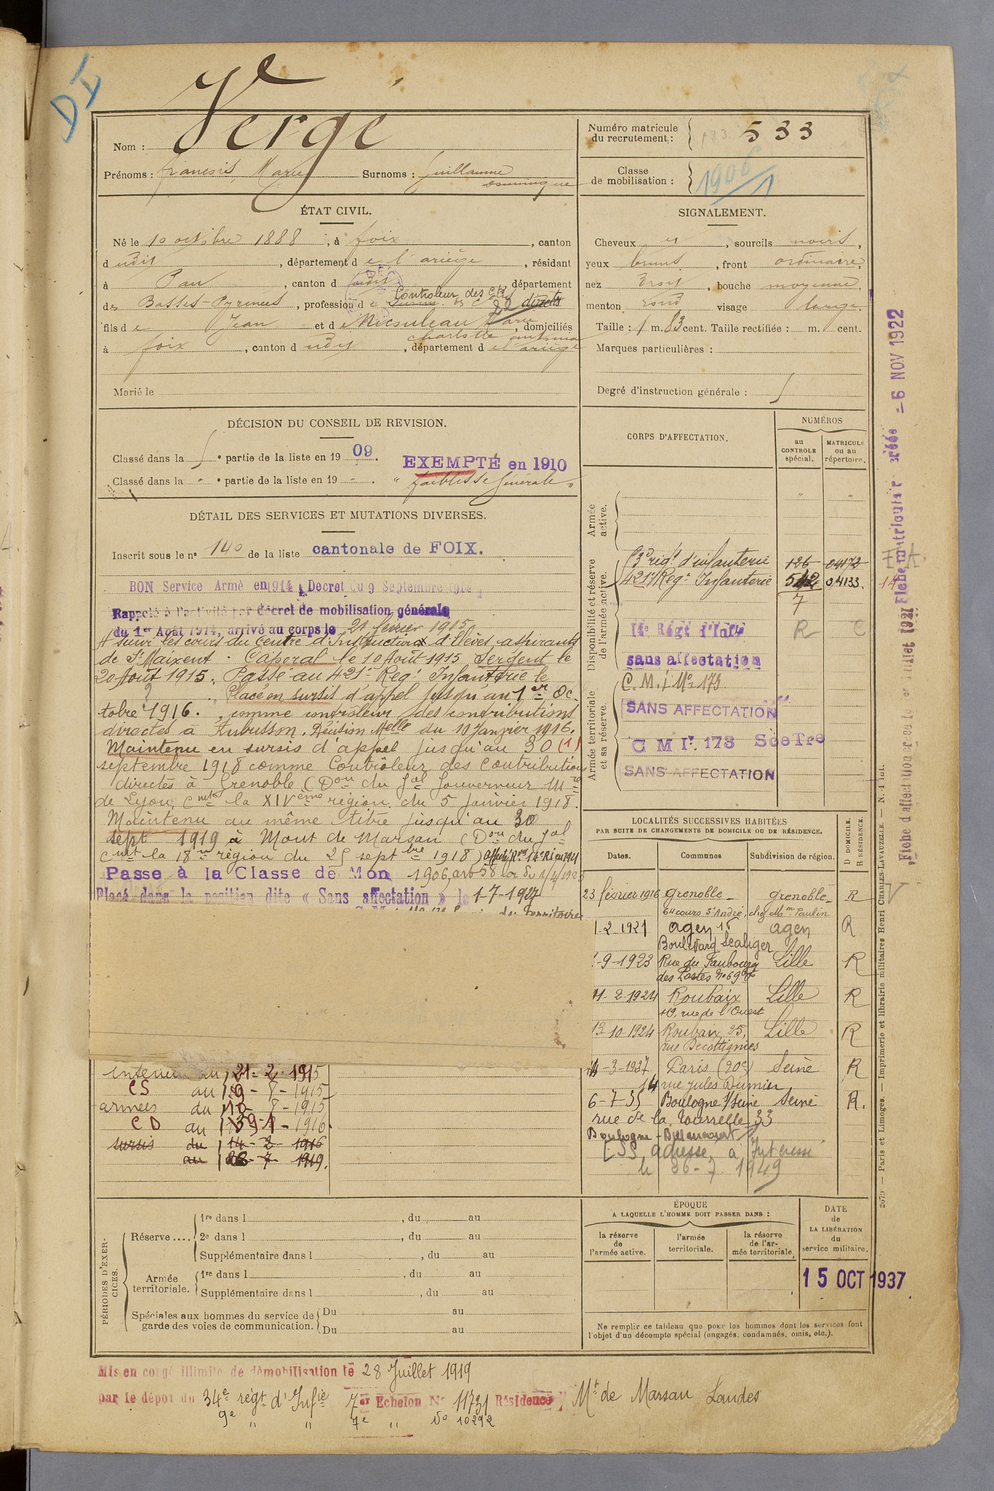 DI
Nom : Vergé
Prénoms : François, Marie Surnoms : Guillaume
Dominique
Numéro matricule
du recrutement : 533
Classe
de mobilisation : 1906
ÉTAT CIVIL.
Né le 10 octobre 1888, à Foix, canton
dudit, département de l'Ariège, résidant
à Pau, canton dudit, département
des Basses-Pyrénées, profession de Controleur des Ctns directes
fils de Jean et de Micsuleau Marie, domiciliés
Charlotte Antonia
à Foix, canton dudit, département de l'Ariège
Marié le
SIGNALEMENT.
Cheveux et, sourcils noirs,
yeux bruns, front ordinaire,
nez droit, bouche moyenne,
menton rond visage large.
Taille : 1 m. 83 cent. Taille rectifiée : m. cent.
Marques particulières :
Degré d'instruction générale : 5
DÉCISION DU CONSEIL DE REVISION.
Classé dans la 5e partie de la liste en 1909. EXEMPTÉ en 1910
Classé dans la " partie de la liste en 19 - . " faiblesse générale "
DÉTAIL DES SERVICES ET MUTATIONS DIVERSES.
Inscrit sous le n° 140 de la liste cantonale de FOIX.
BON Service Armé en 1914, Décret du 9 Septembre 1914
Rappelé à l'activité par décret de mobilisation générale
du 1er Août 1914, arrivé au corps le 21 février 1915,
A suivi les cours du Centre d'Instruction d'Elèves aspirants
de St Maixent. Caporal le 10 Août 1915 Sergent le
20 Août 1915. Passé au 421e Rég. Infanterie le
Placé en sursis d'appel jusqu'au 1er Oc-
tobre 1916, comme controleur des contributions
directes à Aubusson. Décision Melle du 10 janvier 1916.
Maintenu en sursis d'appel jusqu'au 30 (1)
septembre 1918 comme Contrôleur des Contributions
directes à Grenoble (Don du Gal Gouverneur Mre
de Lyon, Cmdt la XIVème région, du 5 janvier 1918.
Maintenu au même titre jusqu'au 30
sept 1919 à Mont de Marsan (Don du Gal
Cmdt la 18e région du 25 septbre 1918)
Passé à la Classe de Mon 1906,
Placé dans la position dite « Sans affectation » le 1-7-1927
intérieur du 21-2-1915
CS au 19-8-1915
armées du 10-8-1915
CD au
sursis du 14-2-1916
au 28-7-1919.
CORPS D'AFFECTATION.
NUMÉROS
au
CONTROLE
spécial.
MATRICULE
OU AU
répertoire.
Armée
active.
Disponibilité et réserve
de l'armée active.
Armée territoriale
et sa réserve.
régt d'infanterie 126 04172
421e Rég. Infanterie 542 04133.
7
Régt d'Inf R C
sans affectation
C.M.I No 173
SANS AFFECTATION
C M Ie. 173 SceTre
SANS AFFECTATION
LOCALITÉS SUCCESSIVES HABITÉES
PAR SUITE DE CHANGEMENTS DE DOMICILE OU DE RÉSIDENCE.
Dates. Communes Subdivision de région.
D DOMICILE.
R RÉSIDENCE.
23 février 1916 Grenoble Grenoble R
cours St André, chez Mme Paulin
1-2-1921 Agen 15 Agen R
Boulevard Scaliger
1-9-1923 Rue du Faubourg Lille R
des Postes No 69
11-2-1924 Roubaix Lille R
40, rue de l'Ouest
13-10-1924 Roubaix 35, Lille R
rue
-3-1937 Paris (20e) Seine R
14 rue Jules Dumien
6-7-35 Boulogne s/Seine Seine R.
rue de la Tourelle 33
Boulogne - Billancourt
adresse à
le 26-7-1949
PÉRIODES D'EXER-
CICES.
Réserve....
1re dans l , du au
2e dans l , du au
Supplémentaire dans l , du au
Armée
territoriale.
1re dans l , du au
Supplémentaire dans l , du au
Spéciales aux hommes du service de
garde des voies de communication.
Du au
Du au
ÉPOQUE
A LAQUELLE L'HOMME DOIT PASSER DANS :
la réserve
de
l'armée active.
l'armée
territoriale.
la réserve
de l'ar-
mée territoriale.
DATE
de
LA LIBÉRATION
du
service militaire.
15 OCT 1937
Ne remplir ce tableau que pour les hommes dont les services font
l'objet d'un décompte spécial (engagés, condamnés, omis, etc.).
Mis en congé illimité de démobilisation le 28 Juillet 1919
par le dépôt du 34e régt d'Infie 7er Echelon No 11731 Résidence Mt de Marsan Landes
9e " " 7e " No 10292
Fiche matriculaire créée - 6 NOV 1922
2679 — Paris et Limoges. — Imprimerie et librairie militaires Henri CHARLES-LAVAUZELLE. — N. 1 int.